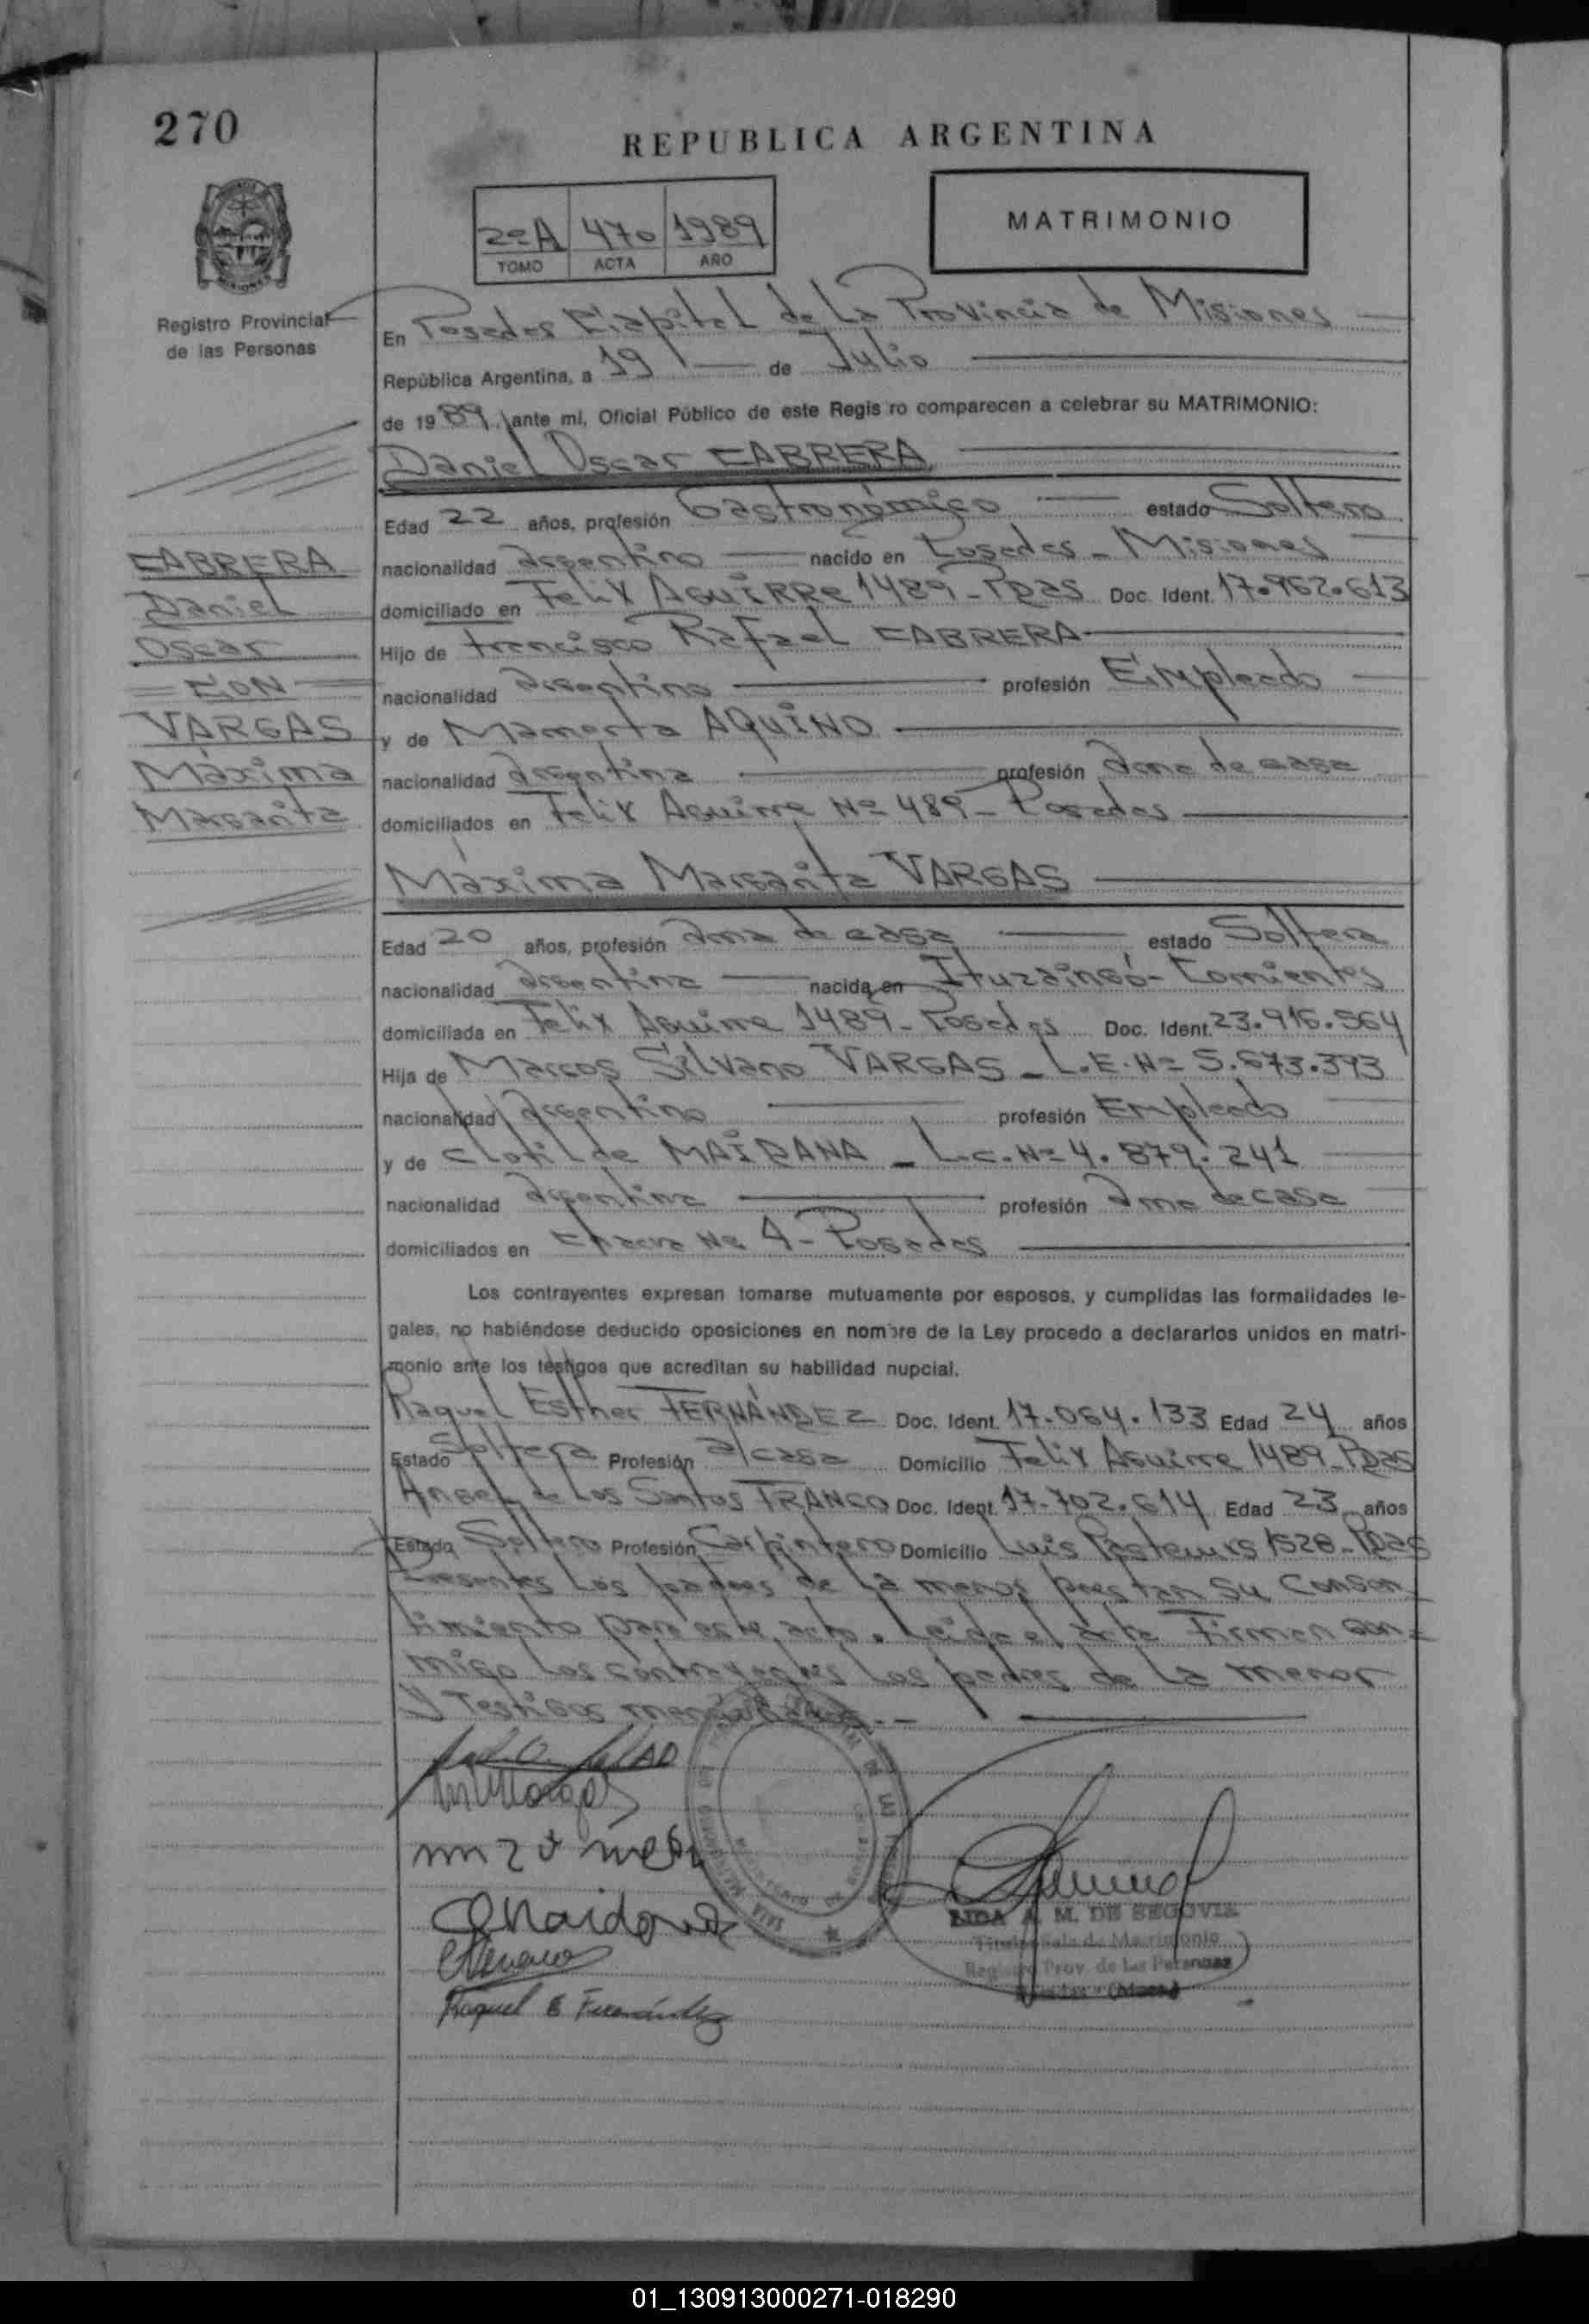 270
REPUBLICA ARGENTINA
2ºA 470 1989
TOMO ACTA AÑO
MATRIMONIO
Registro Provincial
de las Personas
En Posadas Capital de La Provincia de Misiones
República Argentina, a 19 de Julio
de 1989, ante mi, Oficial Público de este Regis ro comparecen a celebrar su MATRIMONIO:
Daniel Oscar CABRERA
Edad 22 años, profesión Gastronómico estado Soltero
nacionalidad argentino nacido en Posadas - Misiones
domiciliado en Felix AGUIRRE 1489 - Pdas Doc. Ident. 17.962.613
Hijo de Francisco Rafael CABRERA
nacionalidad argentino profesión Empleado
y de Mamerta AQUINO
nacionalidad argentina profesión ama de casa
domiciliados en Felix Aguirre Nº 489 - Posadas
CABRERA
Daniel
Oscar
= CON =
VARGAS
Máxima
Margarita
Máxima Margarita VARGAS
Edad 20 años, profesión ama de casa estado Soltera
nacionalidad argentina nacida en Ituzaingó - Corrientes
domiciliada en Felix Aguirre 1489 - Posadas Doc. Ident. 23.916.564
Hija de Marcos Silvano VARGAS - L.E. Nº 5.673.393
nacionalidad argentino profesión Empleado
y de Clotilde MAIDANA - L.C. Nº 4.879.241
nacionalidad argentina profesión ama de casa
domiciliados en Chacra Nº 4 - Posadas
Los contrayentes expresan tomarse mutuamente por esposos, y cumplidas las formalidades le-
gales, no habiéndose deducido oposiciones en nombre de la Ley procedo a declararlos unidos en matri-
monio ante los testigos que acreditan su habilidad nupcial.
Raquel Esther FERNÁNDEZ Doc. Ident. 17.064.133 Edad 24 años
Estado Soltera Profesión a/casa Domicilio Felix Aguirre 1489 - Pdas
Angel de Los Santos FRANCO Doc. Ident. 17.702.614 Edad 23 años
Estado Soltero Profesión Carpintero Domicilio Luis Pasteur 1528 - Pdas
Presentes Los padres de La menor prestan su Consen
timiento para este acto. Leida el acta Firman con=
migo Los contrayentes Los padres de La menor
Y Testigos mencionados. -
Raquel E Fernández
LIDA A. M. DE SEGOVIA
Titular Sala de Matrimonio
Registro Prov. de las Personas
Posadas - (Mnes)
01_130913000271-018290